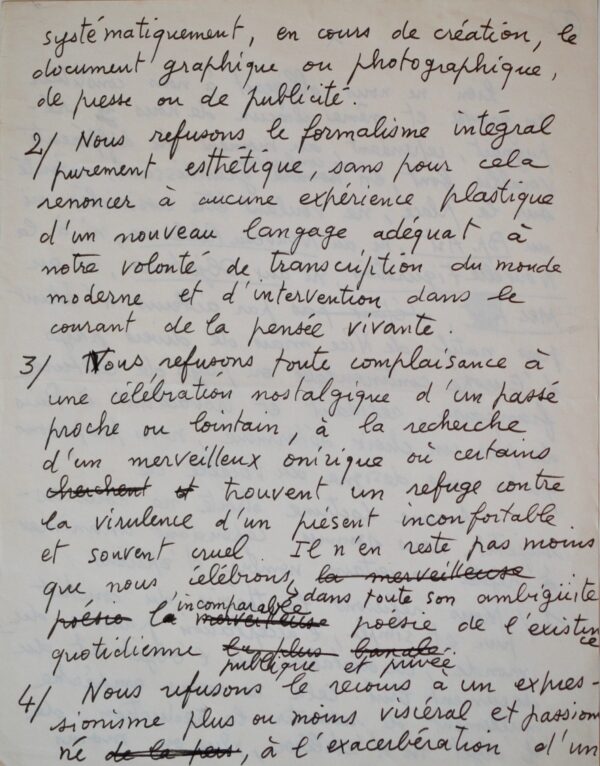 systématiquement, en cours de création, le
document graphique ou photographique,
de presse ou de publicité.
2/ Nous refusons le formalisme intégral
purement esthétique, sans pour cela
renoncer à aucune expérience plastique
d'un nouveau langage adéquat à
notre volonté de transcription du monde
moderne et d'intervention dans le
courant de la pensée vivante.
3/ Nous refusons toute complaisance à
une célébration nostalgique d'un passé
proche ou lointain, à la recherche
d'un merveilleux onirique où certains
cherchent et trouvent un refuge contre
la virulence d'un présent inconfortable
et souvent cruel. Il n'en reste pas moins
que nous célébrons, la merveilleuse
incomparable dans toute son ambigüité
poésie la merveilleuse poésie de l'existence
quotidienne la plus banale.
publique et privée
4/ Nous refusons le recours à un expres-
sionisme plus ou moins viscéral et passion
né de la, à l'exacerbération d'un